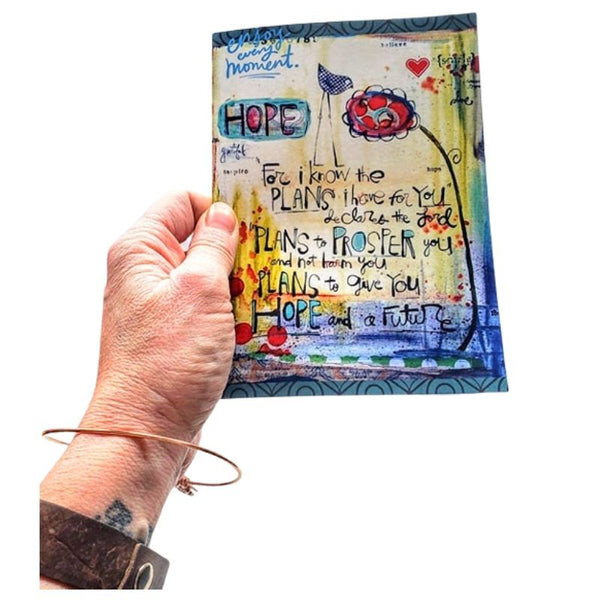 enjoy
every
moment.
believe
HOPE
grateful
inspire
hope
For i know the
PLANS i have for YOU"
declares the Lord
"PLANS to PROSPER you
and not harm you
PLANS to give You
HOPE and a Future